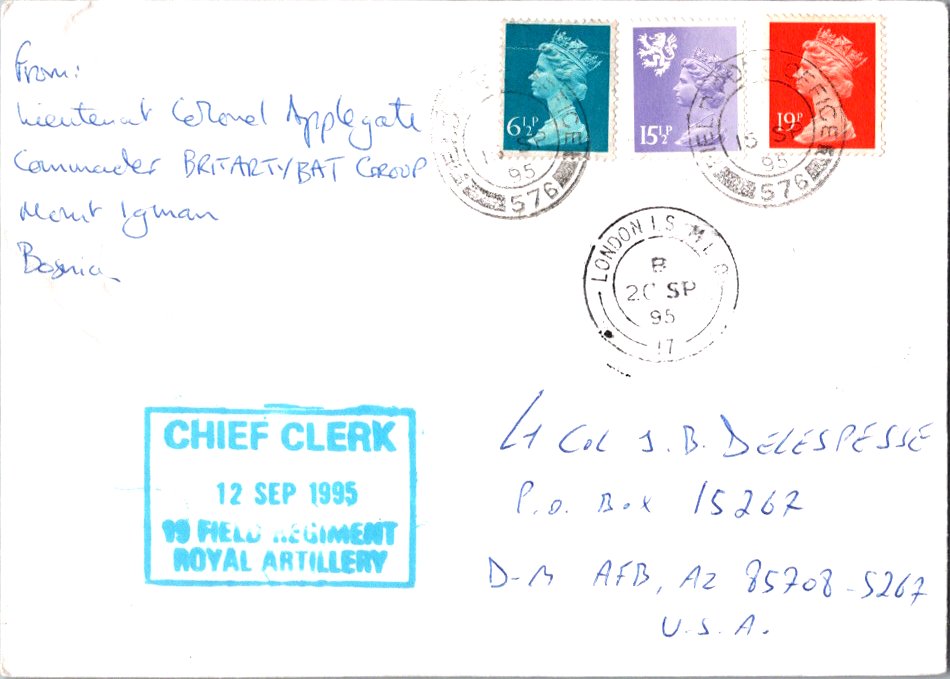 From:
Lieutenant Colonel Applegate
Commander BRITARTYBAT GROUP
Mount Igman
Bosnia
6½P
15½P
19P
FIELD POST OFFICE
15 SP
95
576
LONDON I.S. M.L.O
B
20 SP
95
17
CHIEF CLERK
12 SEP 1995
19 FIELD REGIMENT
ROYAL ARTILLERY
Lt Col J.B. DELESPESSE
P.O. Box 15267
D-M AFB, AZ 85708-5267
U.S.A.